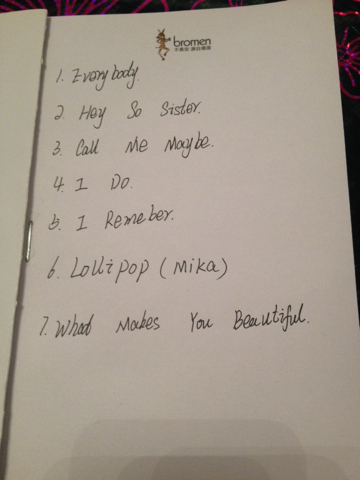 bromen
1. Everybody.
2. Hey So Sister.
3. Call Me Maybe.
4. I Do.
5. I Remeber.
6. Lollipop (Mika)
7. What Makes You Beautiful.